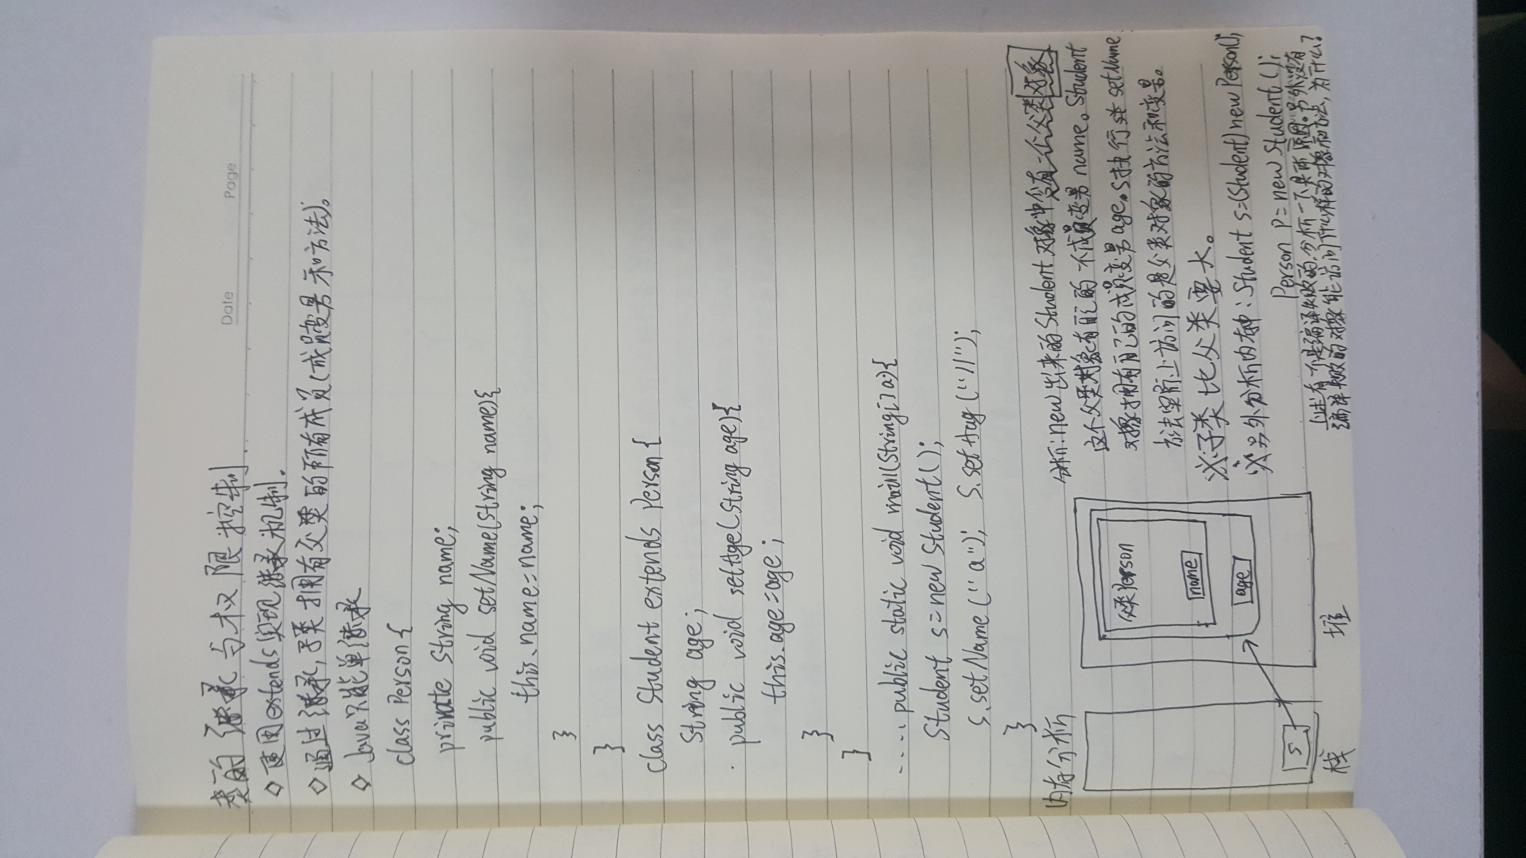 Date Page
类的继承与权限控制
◇ 使用extends实现继承机制.
◇ 通过继承,子类拥有父类的所有成员(成员变量和方法)。
◇ Java只能单继承
class Person {
private String name;
public void setName(String name){
this.name=name;
}
}
class Student extends Person {
String age;
public void setAge(String age){
this.age=age;
}
}
.....public static void main(String[] a){
Student s=new Student();
s.setName("a"); s.setAge("11");
}
内存分析
父类Person
name
age
s
栈 堆
分析:new出来的Student对象中含有一个父类对象
这个父类对象有自己的一个成员变量name。Student
对象拥有自己的成员变量age。s执行 setName
方法实际上访问的是父类对象的方法和变量。
※子类比父类要大。
※另外分析内存:Student s=(Student)new Person();
Person p=new Student();
上述有一个是编译失败的,分析一下是而原因。另外没有
编译失败的对象能访问什么样的对象和方法,为什么?